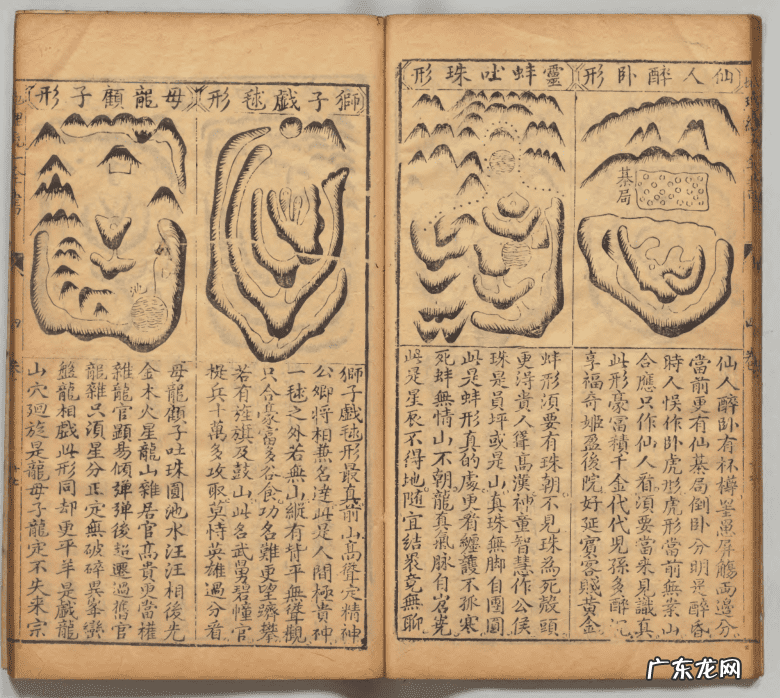 仙人醉卧形
棊局
仙人醉卧有杯樽峯 屏觴兩邊分
當前更有仙棊局倒卧分明是醉昏
時人悮作卧虎形虎形當前無案山
合應只作仙人看須要當來見識真
此形豪富積千金代代兒孫多醉沉
享福奇姬盈後院好延賓客賤黄金
靈蚌吐珠形
蚌形須要有珠朝不見珠為死殻頭
更得貴人聳高漢神童智慧作公侯
珠是員坪或是山真珠無脚自團圓
此是蚌形真的處更看纏護不孤寒
死蚌無情山不朝龍真氣脉自岧嶤
是星辰不得地随宜結裹竟無聊
獅子戲毬形
獅子戲毬形最真前山高聳定精神
公卿將相兼名逹此是人間極貴神
一毬之外若無山縱有皆平無聳觀
只合豪富多谷食功名難更望躋攀
若有旌旗及鼓山此名武勇碧幢官
兵十萬多攻取莫恃英雄過分看
母龍顧子形
母龍顧子吐珠圓池水汪汪相後先
金木火星龍山雜居官髙貴更當權
雜龍官顕易傾弹弹後超遷過舊官
龍雜只須星分正定無破碎異峯巒
盤龍相戲此形同却更平羊是戲龍
山穴廻旋是龍母子龍定不失来宗
广东龙网